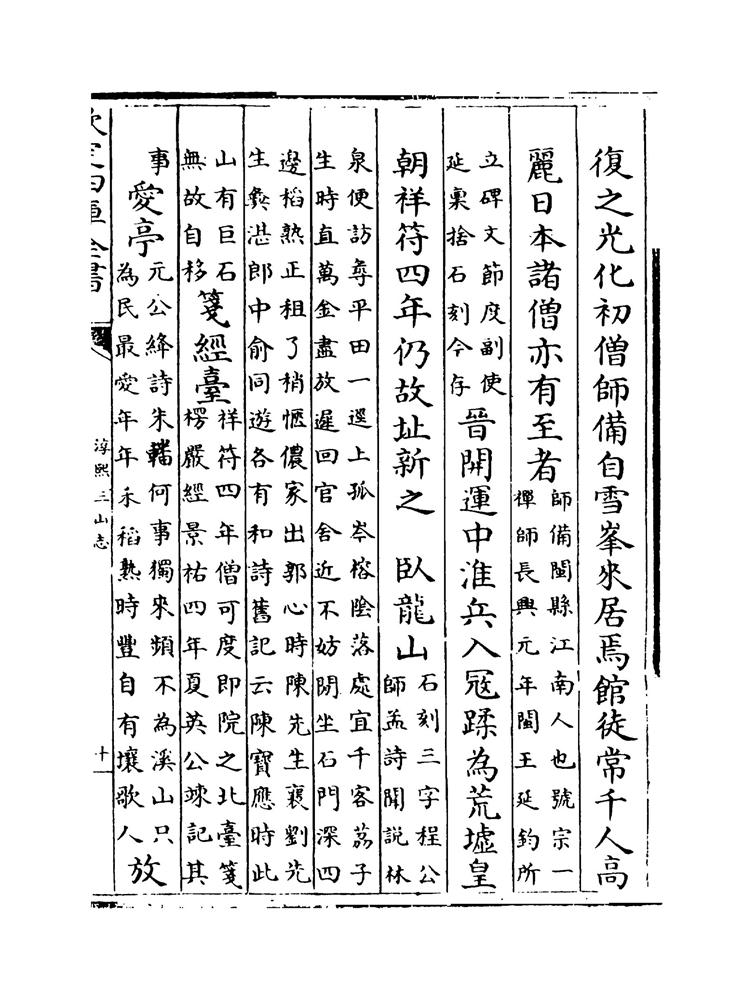 復之光化初僧師備自雪峯來居焉館徒常千人高
麗日本諸僧亦有至者師備閩縣江南人也號宗一
禪師長興元年閩王延鈞所
立碑文節度副使
延稟捨石刻今存晉開運中淮兵入冦蹂為荒墟皇
朝祥符四年仍故址新之　臥龍山石刻三字程公
師孟詩聞説林
泉便訪尋平田一逕上孤岑榕陰落處宜千客荔子
生時直萬金盡放遲回官舍近不妨閒坐石門深四
邊稻熟正租了梢愜儂家出郭心時陳先生襄劉先
生彞湛郎中俞同遊各有和詩舊記云陳寶應時此
山有巨石
無故自移箋經臺祥符四年僧可度即院之北臺箋
楞嚴經景祐四年夏英公竦記其
事　愛亭元公絳詩朱轓何事獨來頻不為溪山只
為民最愛年年禾稻熟時豐自有壤歌人放
欽定四庫全書
淳熙三山志
十